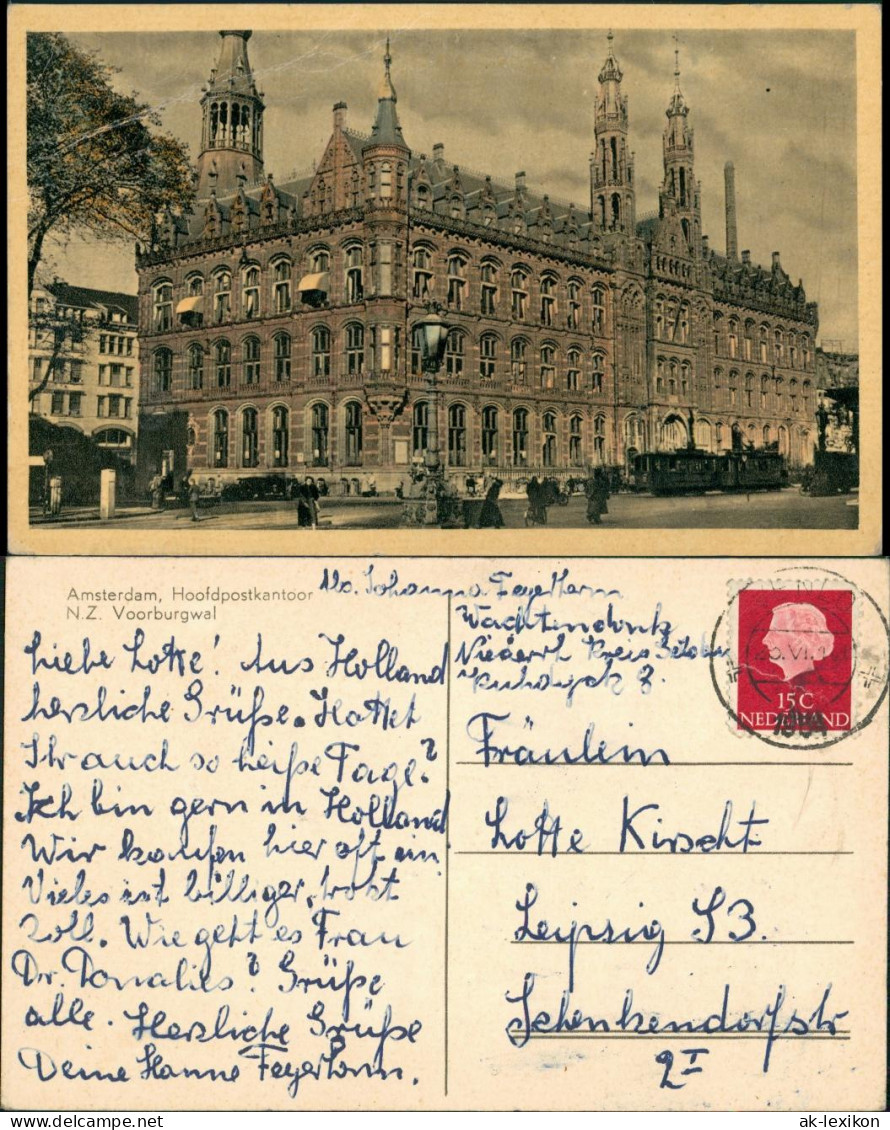 Amsterdam, Hoofdpostkantoor
N.Z. Voorburgwal
Liebe Lotte! Aus Holland
herzliche Grüße. Hattet
Ihr auch so heiße Tage?
Ich bin gern in Holland
Wir kaufen hier oft ein.
Vieles ist billiger, trotz
Zoll. Wie geht es Frau
Dr. Donalies? Grüße
alle. Herzliche Grüße
Deine Hanne Feyerherm.
Johanna Feyerherm
Wachtendonk
Niederrh Kreis Geldern
15C
NEDERLAND
Fräulein
Lotte Kirscht
Leipzig S3.
Schenkendorfstr
2 I
Delcampe.net
ak-lexikon